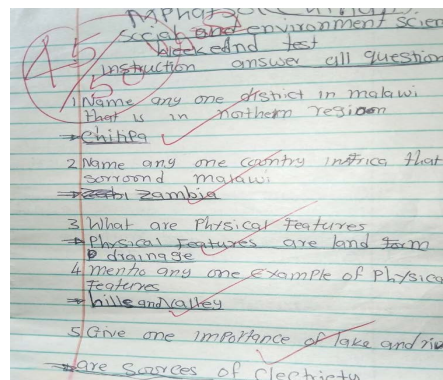 Social and environment scien
weekend test
45
50
instruction answer all question
1 Name any one district in malawi
that is in northern region
→ Chitipa
2 Name any one country in africa that
sorroond malawi
→ Zambia
3 What are Physical Features
→ Physical Features are land form
drainage
4 mentio any one example of Physica
Features
→ hills and Valley
5 Give one importance of lake and riv
→ are Sources of Electriety